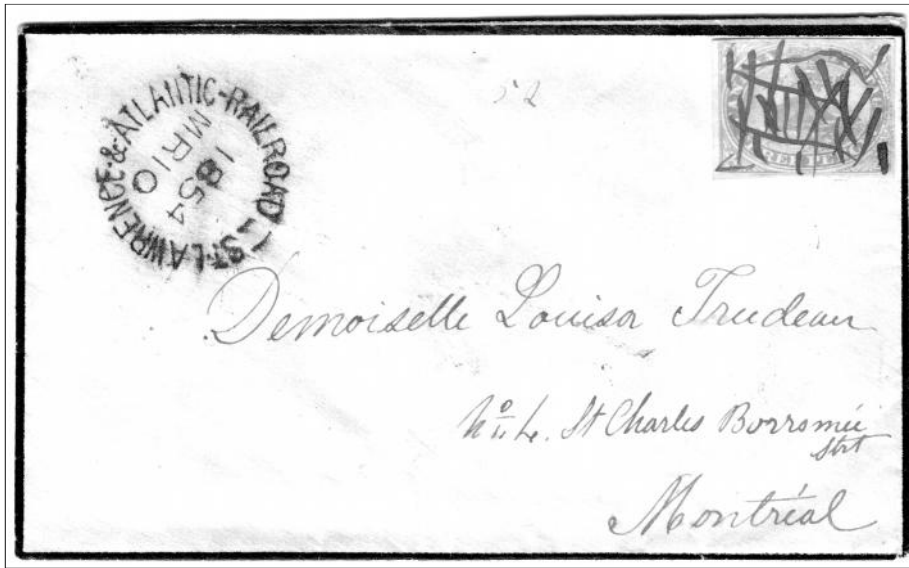 ST. LAWRENCE & ATLANTIC-RAILROAD L
MR 10
1854
52
Demoiselle Louisa Trudeau
No 4. St Charles Borromée
Strt
Montréal